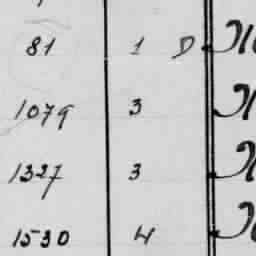 81 1 D
1079 3
1327 3
1530 4